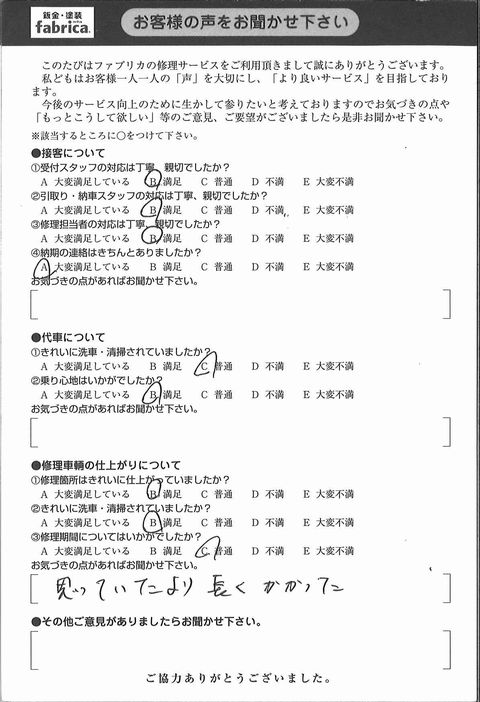 鈑金・塗装
fabrica.
お客様の声をお聞かせ下さい
このたびはファブリカの修理サービスをご利用頂きまして誠にありがとうございます。
私どもはお客様一人一人の「声」を大切にし、「より良いサービス」を目指しており
ます。
今後のサービス向上のために生かして参りたいと考えておりますのでお気づきの点や
「もっとこうして欲しい」等のご意見、ご要望がございましたら是非お聞かせ下さい。
※該当するところに○をつけて下さい。
●接客について
①受付スタッフの対応は丁寧、親切でしたか？
A 大変満足している B 満足 C 普通 D 不満 E 大変不満
②引取り・納車スタッフの対応は丁寧、親切でしたか？
A 大変満足している B 満足 C 普通 D 不満 E 大変不満
③修理担当者の対応は丁寧、親切でしたか？
A 大変満足している B 満足 C 普通 D 不満 E 大変不満
④納期の連絡はきちんとありましたか？
A 大変満足している B 満足 C 普通 D 不満 E 大変不満
お気づきの点があればお聞かせ下さい。
●代車について
①きれいに洗車・清掃されていましたか？
A 大変満足している B 満足 C 普通 D 不満 E 大変不満
②乗り心地はいかがでしたか？
A 大変満足している B 満足 C 普通 D 不満 E 大変不満
お気づきの点があればお聞かせ下さい。
●修理車輌の仕上がりについて
①修理箇所はきれいに仕上がっていましたか？
A 大変満足している B 満足 C 普通 D 不満 E 大変不満
②きれいに洗車・清掃されていましたか？
A 大変満足している B 満足 C 普通 D 不満 E 大変不満
③修理期間についてはいかがでしたか？
A 大変満足している B 満足 C 普通 D 不満 E 大変不満
お気づきの点があればお聞かせ下さい。
思っていたより長くかかってた
●その他ご意見がありましたらお聞かせ下さい。
ご協力ありがとうございました。